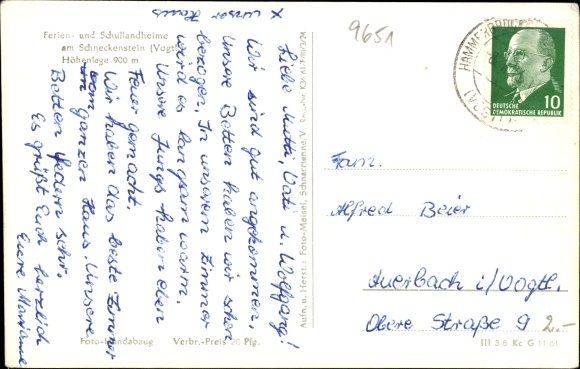 Ferien- und Schullandheime
am Schneckenstein (Vogtl.)
Höhenlage 900 m
x unser Haus
Liebe Mutti, Vati u. Wolfgang!
Wir sind gut angekommen,
Unsere Betten haben wir schon
bezogen. In unserem Zimmer
wird es langsam warm.
Unsere Jungs haben eben
Feuer gemacht.
Wir haben das beste Zimmer
vom ganzen Haus. Unsere
Betten federn sehr.
Es grüßt Euch herzlich
Eure Marianne
Foto-Handabzug Verbr.-Preis 20 Pfg.
Aufn. u. Herst.: Foto-Meisel, Schnarrtanne V.
9651
HAMMERBRÜCKE
DEUTSCHE
DEMOKRATISCHE REPUBLIK
10
Fam.
Alfred Beier
Auerbach i/Vogtl.
Obere Straße 9
2.-
III 3 8 Kc G 11 61